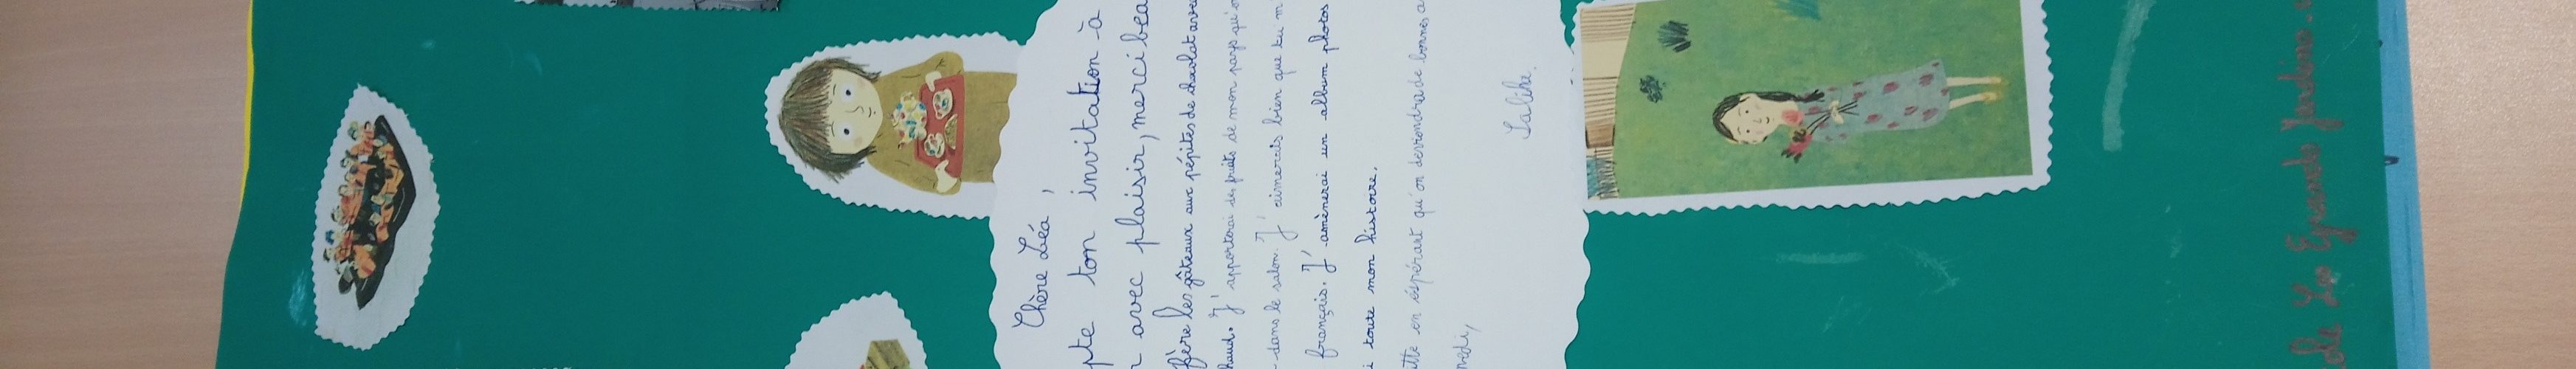 Chère Léa,
pte ton invitation à
avec plaisir, merci bea
fère les gâteaux aux pépites de chocolat avec
haud. J'apporterai des fruits de mon pays qu'o
dans le salon. J'aimerais bien que tu m'
français. J'amènerai un album photos
i toute mon histoire.
tte en espérant qu'on deviendra de bonnes a
medi,
Salihe.
ole Les Grands Jardins.